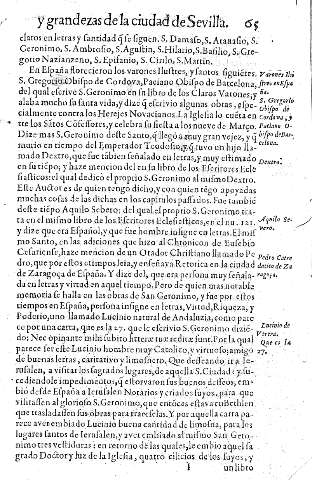 y grandezas de la ciudad de Sevilla. 65
claros en letras y santidad q̃ se siguen. S. Damaso, S. Atanasio, S.
Geronimo, S. Ambrosio, S. Agustin, S. Hilario, S. Basilio, S. Gre-
gorio Nazianzeno, S. Epifanio, S. Cirilo, S. Martin.
En España florecieron los varones Ilustres, y santos siguiẽtes.
S. Gregorio Obispo de Cordova, Paciano Obispo de Barcelona,
del qual escrive S. Geronimo en su libro de los Claros Varones, y
alaba mucho su santa vida, y dize q̃ escrivio algunas obras, espe-
cialmente contra los Herejes Novacianos. La Iglesia lo cuẽta en-
tre los Sãtos Cõfessores, y celebra su fiesta a los nueve de Março.
Dize mas S. Geronimo deste Santo, q̃ llegó a muy gran vejez, y
murio en tiempo del Emperador Teodosio, q̃ tuvo en hijo lla-
mado Dextro, que fue tãbien señalado en letras, y muy estimado
en su tiẽpo; y haze mencion del en su libro de los Escritores Ecle
siasticos: el qual dedicó el proprio S. Geronimo al mismo Dextro.
Este Auctor es de quien tengo dicho, y con quien tẽgo apoyadas
muchas cosas de las dichas en los capitulos passados. Fue tambiẽ
deste tiẽpo Aquilo Sebero; del qual el proprio S. Geronimo tra-
ta en el mismo libro de los Escritores Eclesiasticos, en el nu. 121.
y dize que era Español, y que fue hombre insigne en letras. El mis
mo Santo, en las adiciones que hizo al Chronicon de Eusebio
Cesariense, haze mencion de un Orador Christiano llamado Pe
dro, que por estos tiempos leìa, y enseñava Retorica en la ciudad
de Zaragoça de España. Y dize del, que era persona muy señala-
da en letras y virtud en aquel tiempo. Pero de quien mas notable
memoria se halla en las obras de San Geronimo, y fue por estos
tiempos en España, persona insigne en letras, Virtud, Riqueza, y
Poderio, uno llamado Lucinio natural de Andaluzia, como pare
ce por una carta, que es la 27. que le escrivio S. Geronimo diziẽ-
do: Nec opinante mihi subito litteræ tuæ redditæ sunt. Por la qual
parece ser este Lucinio hombre muy Catolico, y virtuoso, amigo
de buenas letras, caritativo y limosnero. Que desseando ir a Ie-
rusalen, a visitar los sagrados lugares, de aquella S. Ciudad: y su-
cediendole impedimentos, q̃ estorvaron sus buenos desseos, em-
bió desde España a Ierusalen Notarios y criados suyos, para que
visitassen al glorioso S. Geronimo, que entõces estava en Bethlen
que trasladassen sus obras para traerselas. Y por aquella carta pa-
rece aver embiado Lucinio buena cantidad de limosna, para los
lugares santos de Ierusalen, y aver embiado al mismo San Gero-
nimo tres vestiduras: en retorno de las quales, le embio aquel sa
grado Doctor y luz de la Iglesia, quatro cilicios de los suyos, y
I un libro
Varones Ilus
tres en Espa
ña.
S. Gregorio
Obispo de
Cordova, y
Paciano O-
bispo de Bar-
celona.
Dextro.
Aquilo Se-
vero.
Pedro Cate
dratico de Za
ragoça.
Lucinio de
Vetica.
Que es la
27.